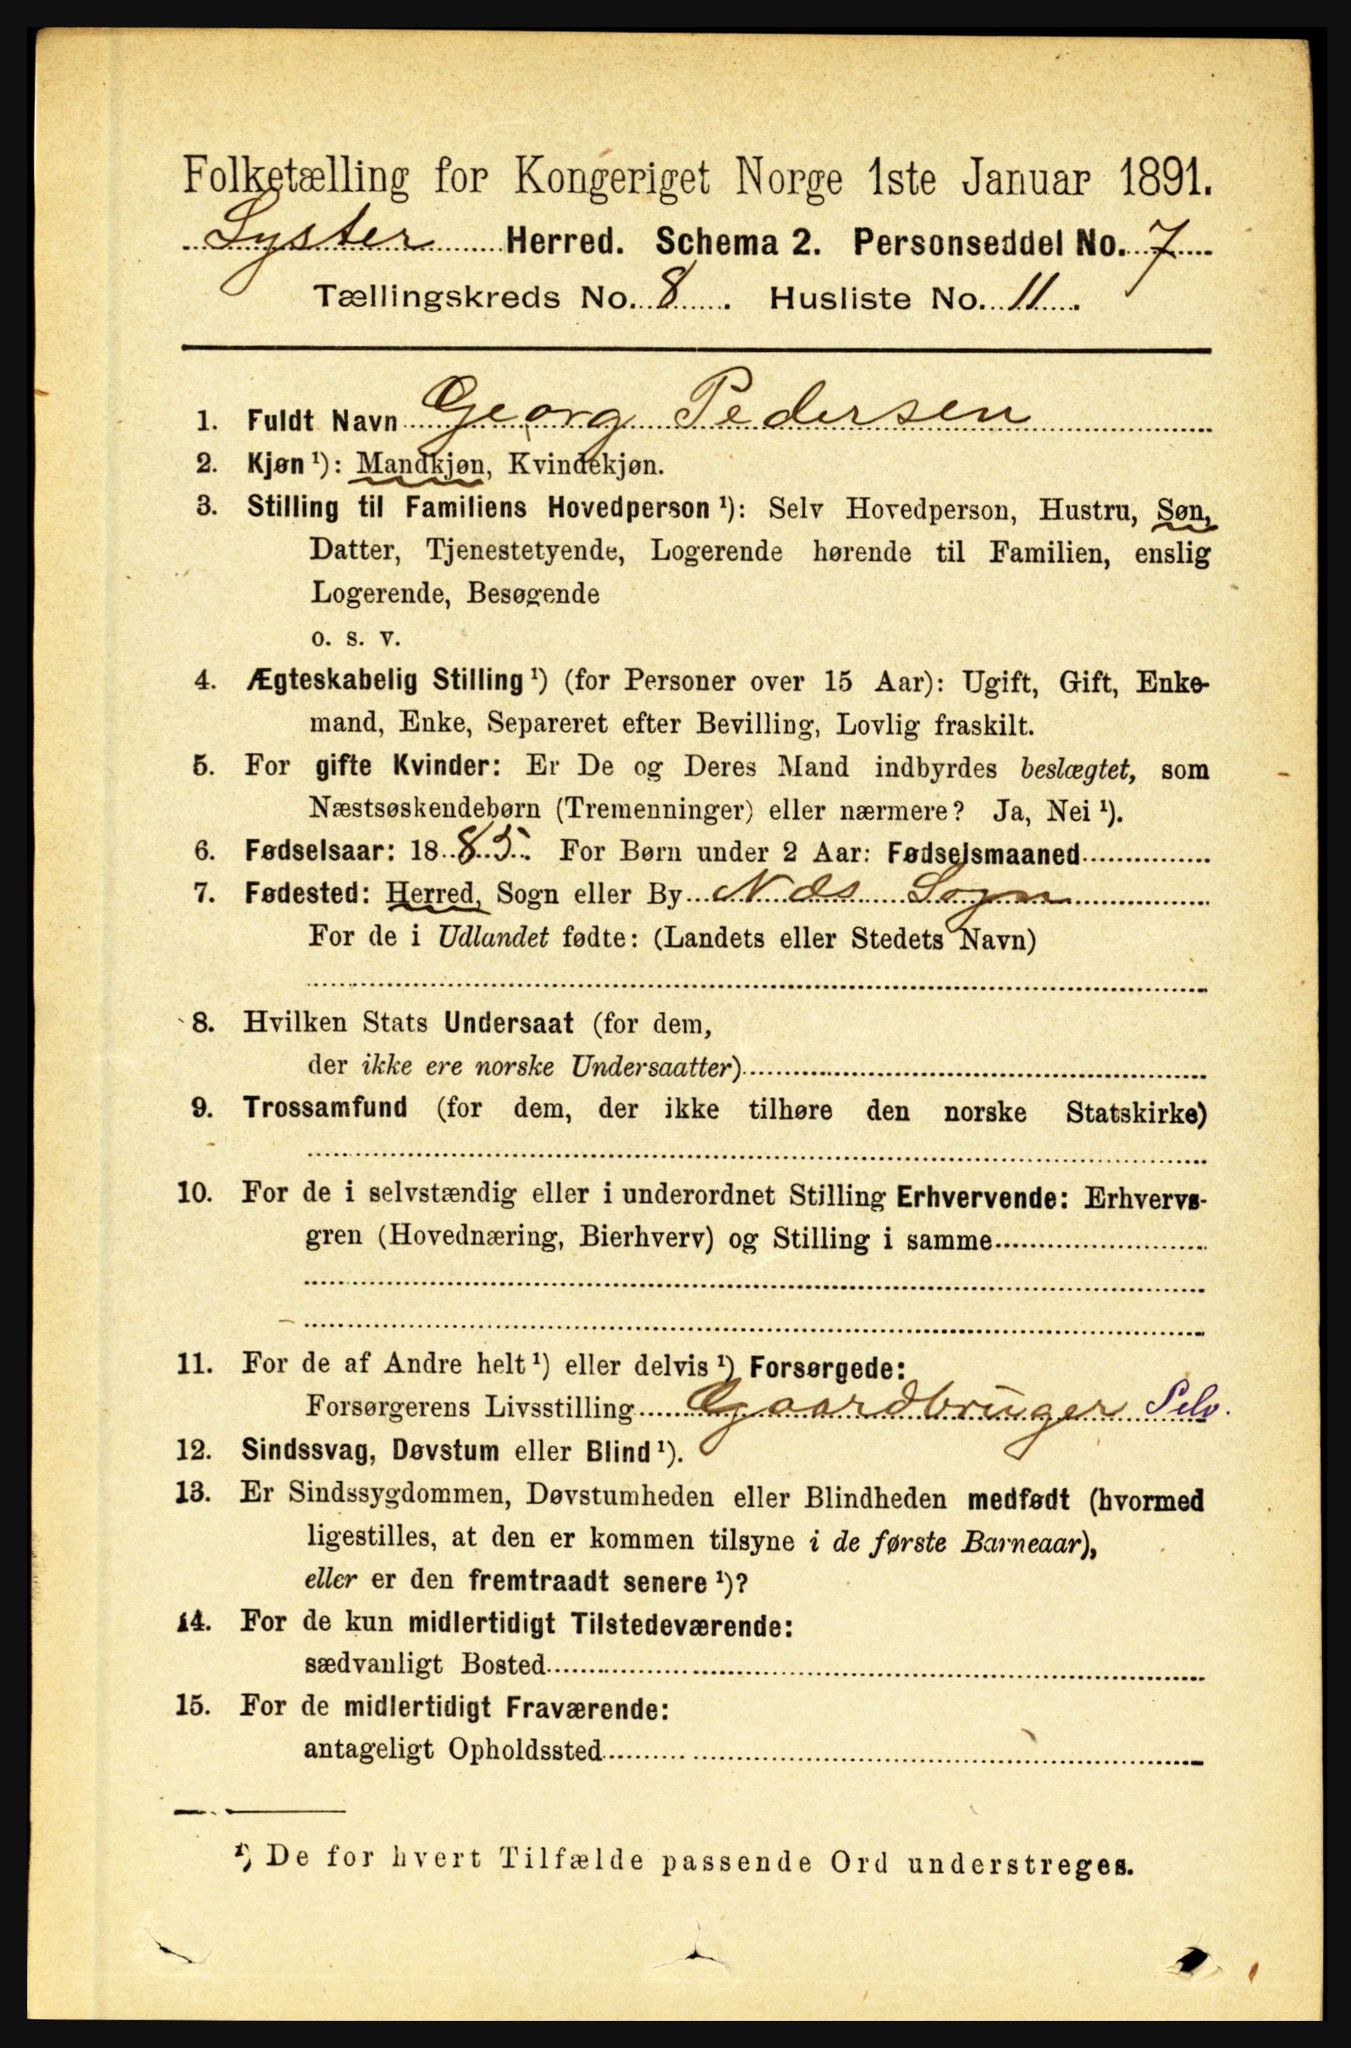 Folketælling for Kongeriget Norge 1ste Januar 1891.
Lyster Herred. Schema 2. Personseddel No. 7
Tællingskreds No. 8. Husliste No. 11.
1. Fuldt Navn Georg Pedersen
2. Kjøn ¹): Mandkjøn, Kvindekjøn.
3. Stilling til Familiens Hovedperson ¹): Selv Hovedperson, Hustru, Søn,
Datter, Tjenestetyende, Logerende hørende til Familien, enslig
Logerende, Besøgende
o. s. v.
4. Ægteskabelig Stilling ¹) (for Personer over 15 Aar): Ugift, Gift, Enke-
mand, Enke, Separeret efter Bevilling, Lovlig fraskilt.
5. For gifte Kvinder: Er De og Deres Mand indbyrdes beslægtet, som
Næstsøskendebørn (Tremenninger) eller nærmere? Ja, Nei ¹).
6. Fødselsaar: 1885. For Børn under 2 Aar: Fødselsmaaned
7. Fødested: Herred, Sogn eller By Næs Sogn
For de i Udlandet fødte: (Landets eller Stedets Navn)
8. Hvilken Stats Undersaat (for dem,
der ikke ere norske Undersaatter)
9. Trossamfund (for dem, der ikke tilhøre den norske Statskirke)
10. For de i selvstændig eller i underordnet Stilling Erhvervende: Erhvervs-
gren (Hovednæring, Bierhverv) og Stilling i samme
11. For de af Andre helt ¹) eller delvis ¹) Forsørgede:
Forsørgerens Livsstilling Gaardbruger Selv.
12. Sindssvag, Døvstum eller Blind ¹).
13. Er Sindssygdommen, Døvstumheden eller Blindheden medfødt (hvormed
ligestilles, at den er kommen tilsyne i de første Barneaar),
eller er den fremtraadt senere ¹)?
14. For de kun midlertidigt Tilstedeværende:
sædvanligt Bosted
15. For de midlertidigt Fraværende:
antageligt Opholdssted
¹) De for hvert Tilfælde passende Ord understreges.